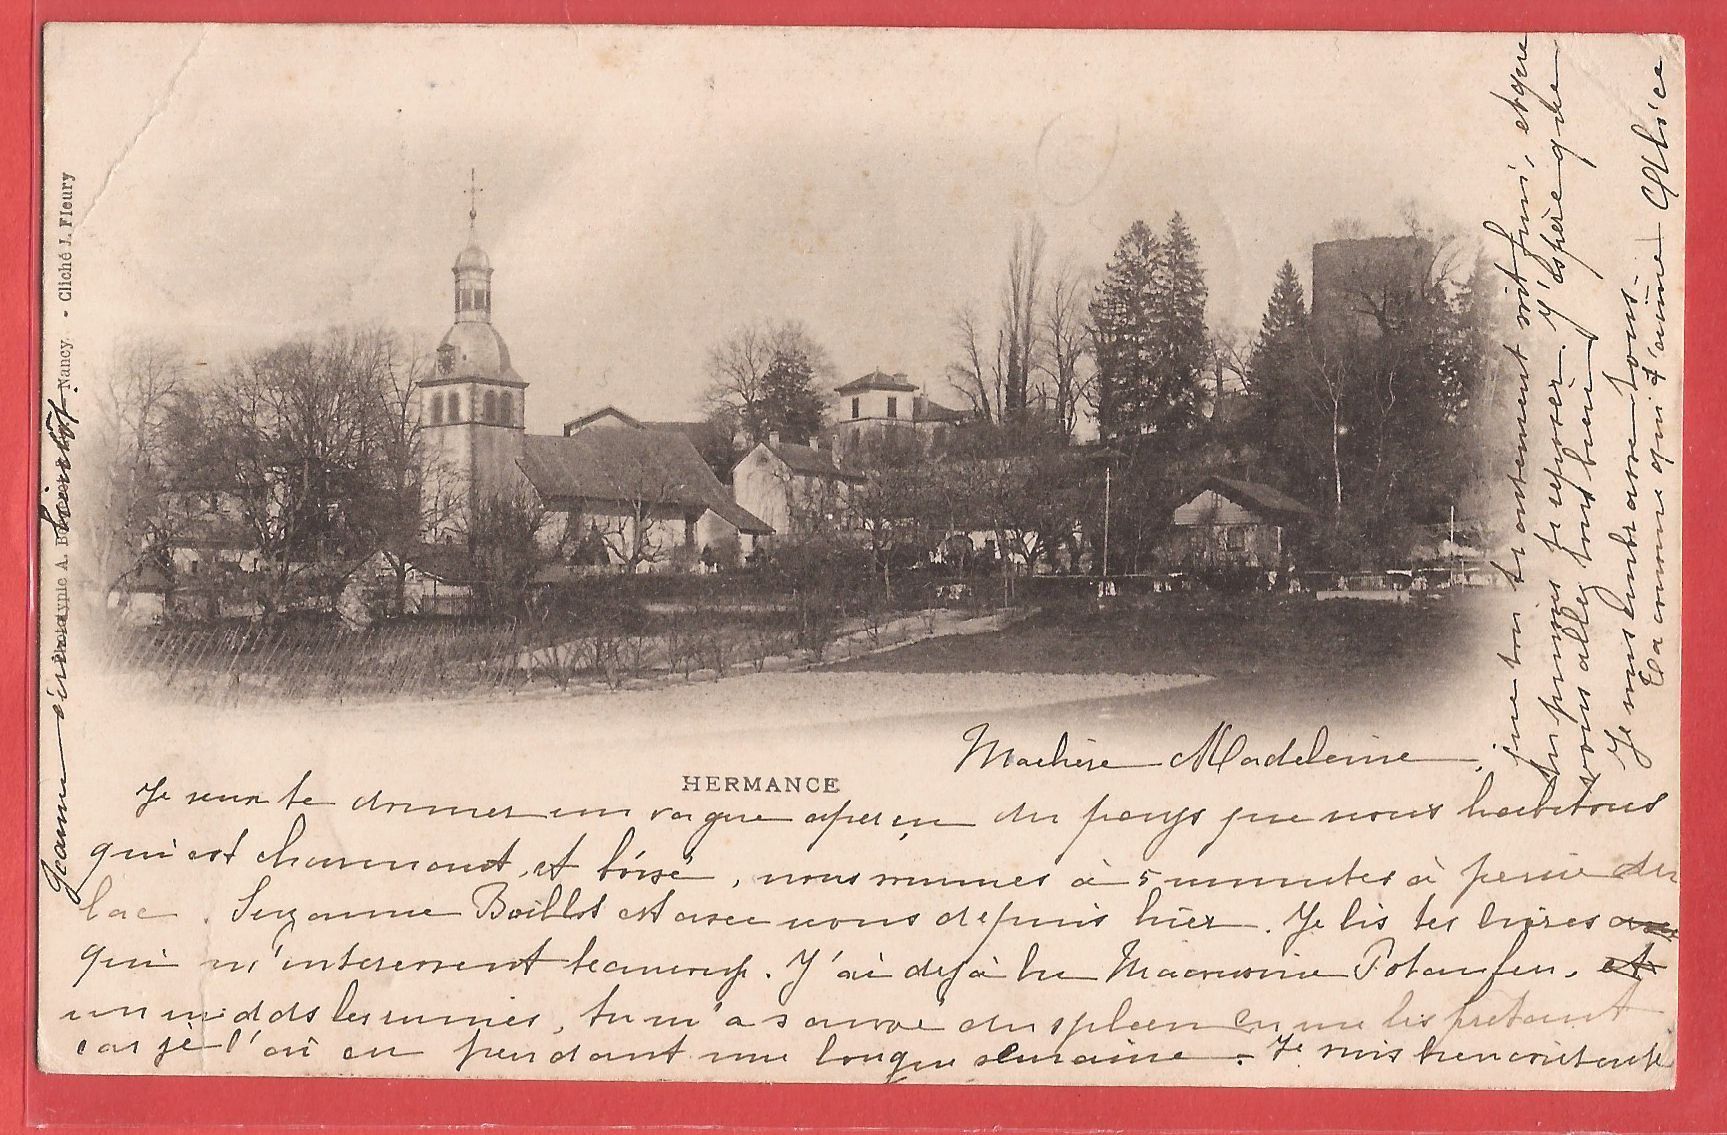 Phototypie A. B Nancy. - Cliché J. Fleury
HERMANCE
Ma chère Madeleine,
Je veux te donner un vague aperçu du pays que nous habitons
qui est charmant, et boisé, nous sommes à 5 minutes à peine du
lac. Suzanne Boillot est avec nous depuis hier. Je lis tes livres
qui m'interessent beaucoup. J'ai dejà lu Macaronie et
un nid dans les ruines, tu m'a sauvé du spleen en me les pretant
car je l'ai eu pendant une longue semaine. Je suis bien contente
que ton traitement soit fini, et que
tu puisses te reposer. J'espère que
vous allez tous bien
Je vous embrasse tous.
Ta comme qui t'aime Alice
Jeanne écrira bientôt.